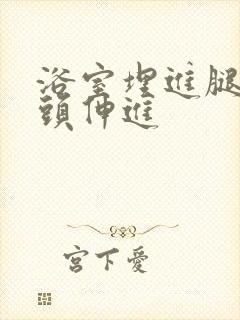 浴室埋進腿
頭伸進
宮下愛